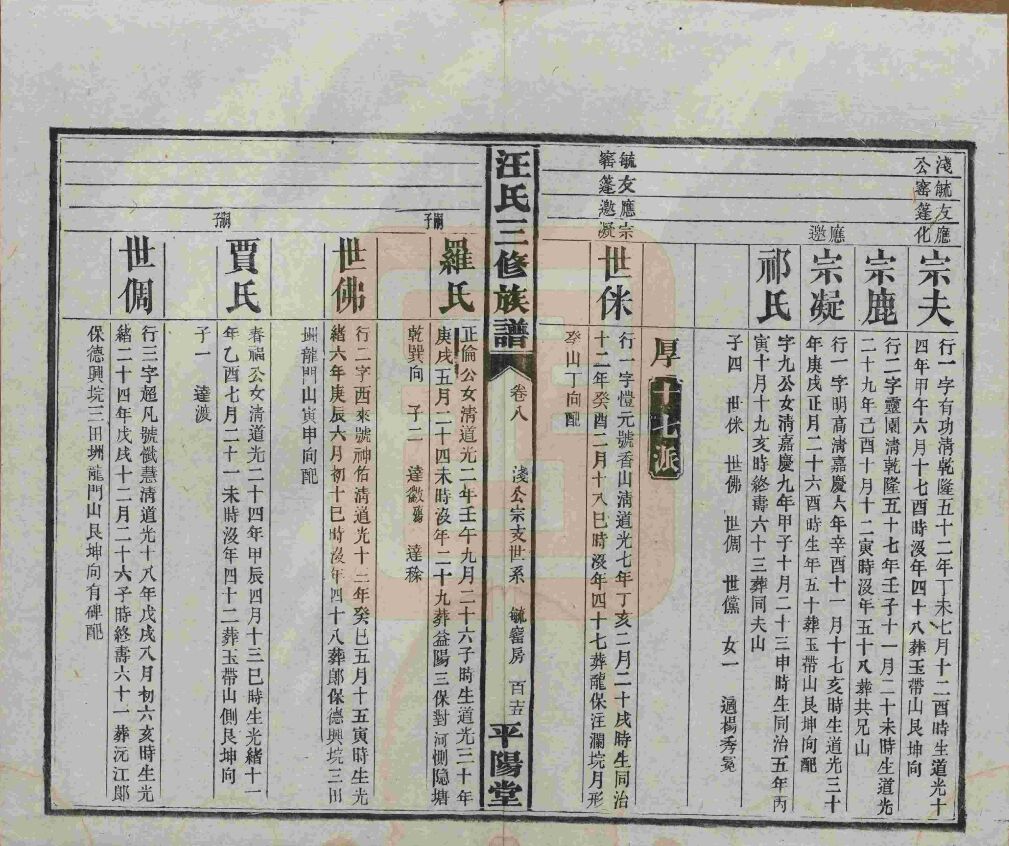 淺毓友應
公窰篷化
宗夫
行一字有功清乾隆五十二年丁未七月十二酉時生道光十
四年甲午六月十七酉時沒年四十八葬玉帶山艮坤向
宗鹿
行二字靈園清乾隆五十七年壬子十一月二十未時生道光
二十九年己酉十月十二寅時沒年五十八葬共兄山
應邀
宗凝
行一字明高清嘉慶六年辛酉十一月十七亥時生道光三十
年庚戌正月二十六酉時生年五十葬玉帶山艮坤向配
祁氏
字九公女清嘉慶九年甲子十月二十三申時生同治五年丙
寅十月十九亥時終壽六十三葬同夫山
子四 世倈 世佛 世倜 世儻 女一 適楊秀冕
厚十七派
毓友應宗
窰篷邀凝
世倈
行一字愷元號香山清道光七年丁亥二月二十戌時生同治
十二年癸酉二月十八巳時沒年四十七葬龍保汪瀾坑月形
癸山丁向配
汪氏三修族譜
卷八
淺公宗支世系
毓窰房
平陽堂
羅氏
正倫公女清道光二年壬午九月二十六子時生道光三十年
庚戌五月二十四未時沒年二十九葬益陽三保對河側隐塘
乾巽向 子二 達徽 達稼
嗣子
世佛
行二字西來號神佑清道光十三年癸巳五月十五寅時生光
緒六年庚辰六月初十巳時沒年四十八葬鄭保德興坑三田
坳龍門山寅申向配
賈氏
春福公女清道光二十四年甲辰四月十三巳時生光緒十一
年乙酉七月二十一未時沒年四十二葬玉帶山側艮坤向
子一 達渡
嗣子
世倜
行三字超凡號懺慧清道光十八年戊戌八月初六亥時生光
緒二十四年戊戌十二月二十六子時終壽六十一葬沅江鄭
保德興坑三田坳龍門山艮坤向有碑配